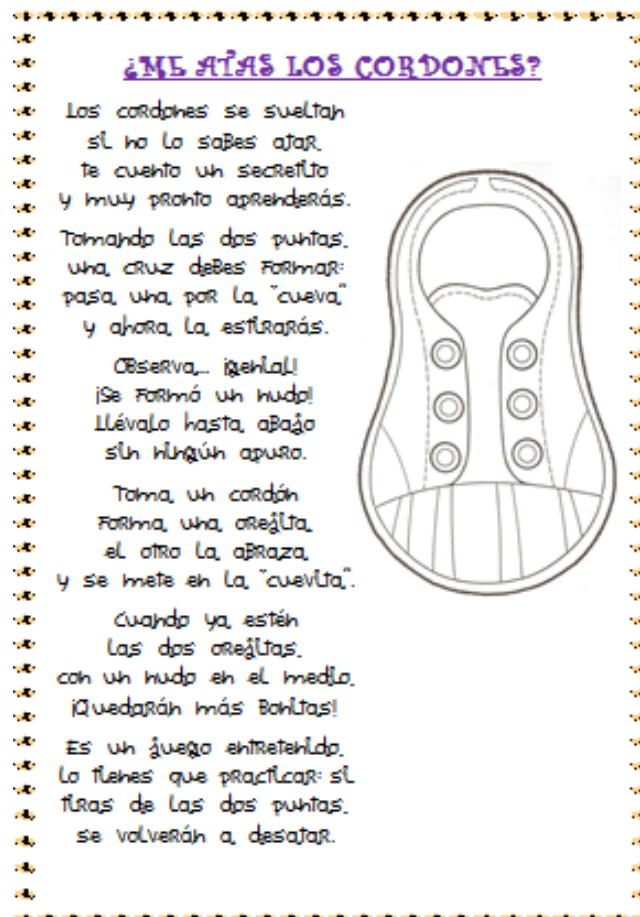 ¿ME ATAS LOS CORDONES?
Los cordones se sueltan
si no lo sabes atar,
te cuento un secretito
y muy pronto aprenderás.
Tomando las dos puntas,
una cruz debes formar:
pasa una por la "cueva"
y ahora la estirarás.
Observa... ¡genial!
¡Se formó un nudo!
Llévalo hasta abajo
sin ningún apuro.
Toma un cordón
forma una orejita,
el otro la abraza
y se mete en la "cuevita".
Cuando ya estén
las dos orejitas,
con un nudo en el medio,
¡Quedarán más bonitas!
Es un juego entretenido,
lo tienes que practicar: si
tiras de las dos puntas,
se volverán a desatar.